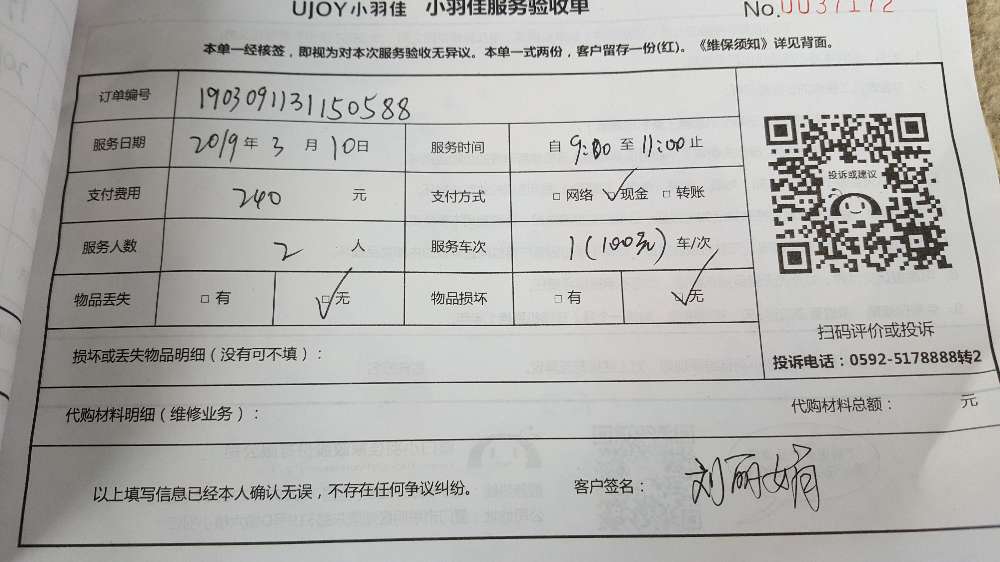 UJOY小羽佳 小羽佳服务验收单 No.0037172
本单一经核签，即视为对本次服务验收无异议。本单一式两份，客户留存一份(红)。《维保须知》详见背面。
订单编号 1903091131150588
服务日期 2019年 3 月 10日 服务时间 自 9:00 至 11:00 止
支付费用 240 元 支付方式 □ 网络 ☑现金 □ 转账
服务人数 2 人 服务车次 1(100元) 车/次
物品丢失 □ 有 ☑无 物品损坏 □ 有 ☑无
投诉或建议
扫码评价或投诉
投诉电话：0592-5178888转2
损坏或丢失物品明细（没有可不填）：
代购材料明细（维修业务）： 代购材料总额： 元
以上填写信息已经本人确认无误，不存在任何争议纠纷。 客户签名： 刘丽娟